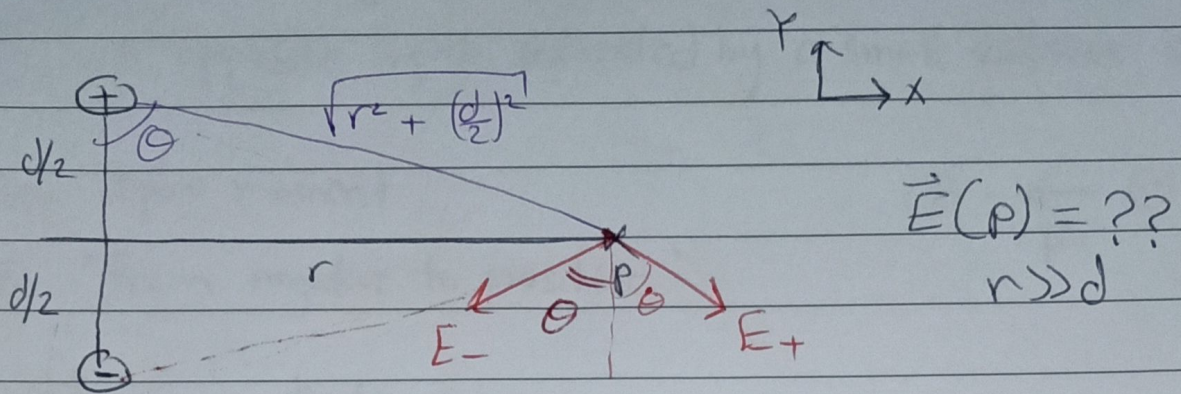 Y
X
+
√r² + (d/2)²
θ
d/2
E⃗(p) = ??
r>>d
r
P
θ
θ
d/2
E-
E+
-